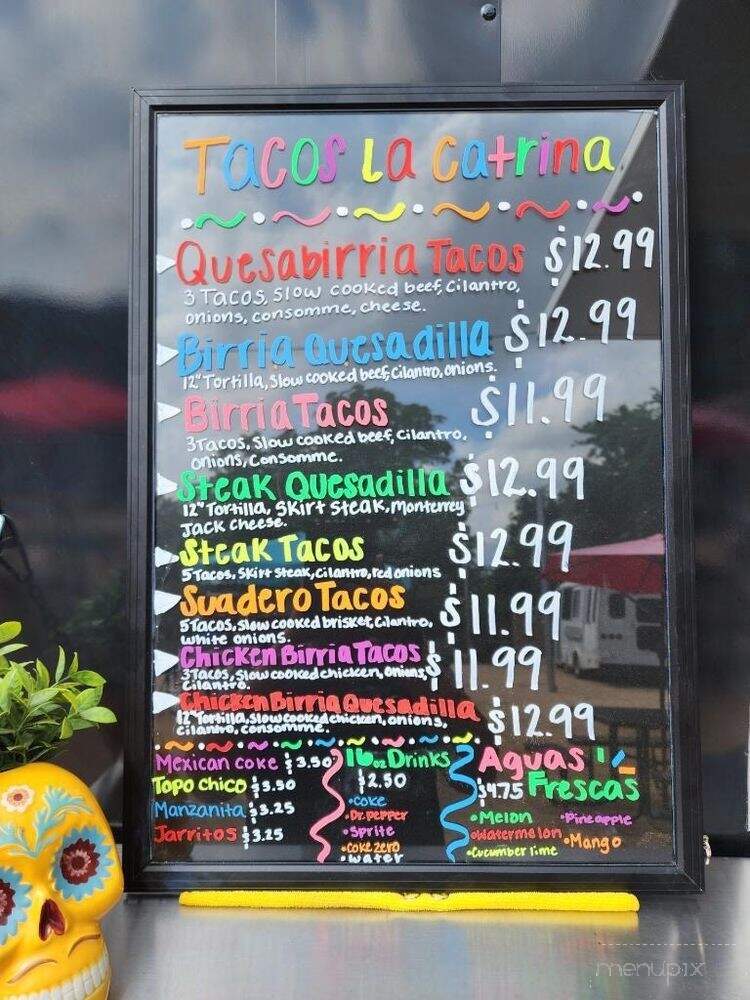 Tacos La Catrina
Quesabirria Tacos $12.99
3 Tacos, Slow cooked beef, Cilantro,
onions, consomme, cheese.
Birria Quesadilla $12.99
12" Tortilla, Slow cooked beef, Cilantro, onions.
Birria Tacos $11.99
3 Tacos, Slow cooked beef, Cilantro,
onions, Consomme.
Steak Quesadilla $12.99
12" Tortilla, Skirt steak, Monterrey
Jack Cheese.
Steak Tacos $12.99
5 Tacos, Skirt steak, Cilantro, red onions
Suadero Tacos $11.99
5 Tacos, slow cooked brisket, Cilantro,
white onions.
Chicken Birria Tacos $11.99
3 Tacos, Slow cooked chicken, onions,
Cilantro.
Chicken Birria Quesadilla $12.99
12" Tortilla, Slow cooked chicken, onions,
cilantro, consomme.
Mexican coke $3.50
Topo chico $3.50
Manzanita $3.25
Jarritos $3.25
16oz Drinks
$2.50
•Coke
•Dr. pepper
•Sprite
•Coke zero
•water
Aguas
$4.75 Frescas
•Melon •Pineapple
•Watermelon •Mango
•Cucumber lime
menupix